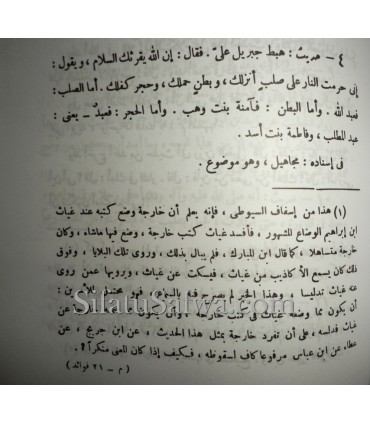 ٤ – حديث : هبط جبريل علىّ . فقال : إن الله يقرئك السلام ، ويقول :
إنى حرمت النار على صلب أنزلك ، وبطن حملك ، وحجر كفلك . أما الصلب :
فعبد الله . وأما البطن : فآمنة بنت وهب . وأما الحجر : فعبد – يعنى :
عبد المطلب ، وفاطمة بنت أسد .
فى إسناده : مجاهيل ، وهو موضوع .
(١) هذا من إسفاف السيوطى ، فإنه يعلم أن خارجة وضع كتبه عند غياث
ابن إبراهيم الوضاع المشهور ، فأفسد غياث كتب خارجة ، وضع فيها ماشاء ، وكان
خارجة متساهلا ، كما قال ابن المبارك ، فلم يبال بذلك ، وروى تلك البلايا ، وفوق
ذلك كان يسمع الأكاذيب من غياث ، فيسكت عن غياث ، ويرويها عمن روى
غياث تدليسا ، وهذا الخبر لم يصرح فيه بالسماع ، فهو محتمل للأمرين :
أن يكون مما وضعه غياث فى كتب خارجة ، وأن يكون مما سمعه خارجة من
غياث فدلسه ، على أن تفرد خارجة بمثل هذا الحديث ، عن ابن جريج ، عن
عطاء عن ابن عباس مرفوعا كاف لسقوطه ، فكيف إذا كان المتن منكرا ؟ .
( م – ٢١ فوائد )
SilatuSalwa.com